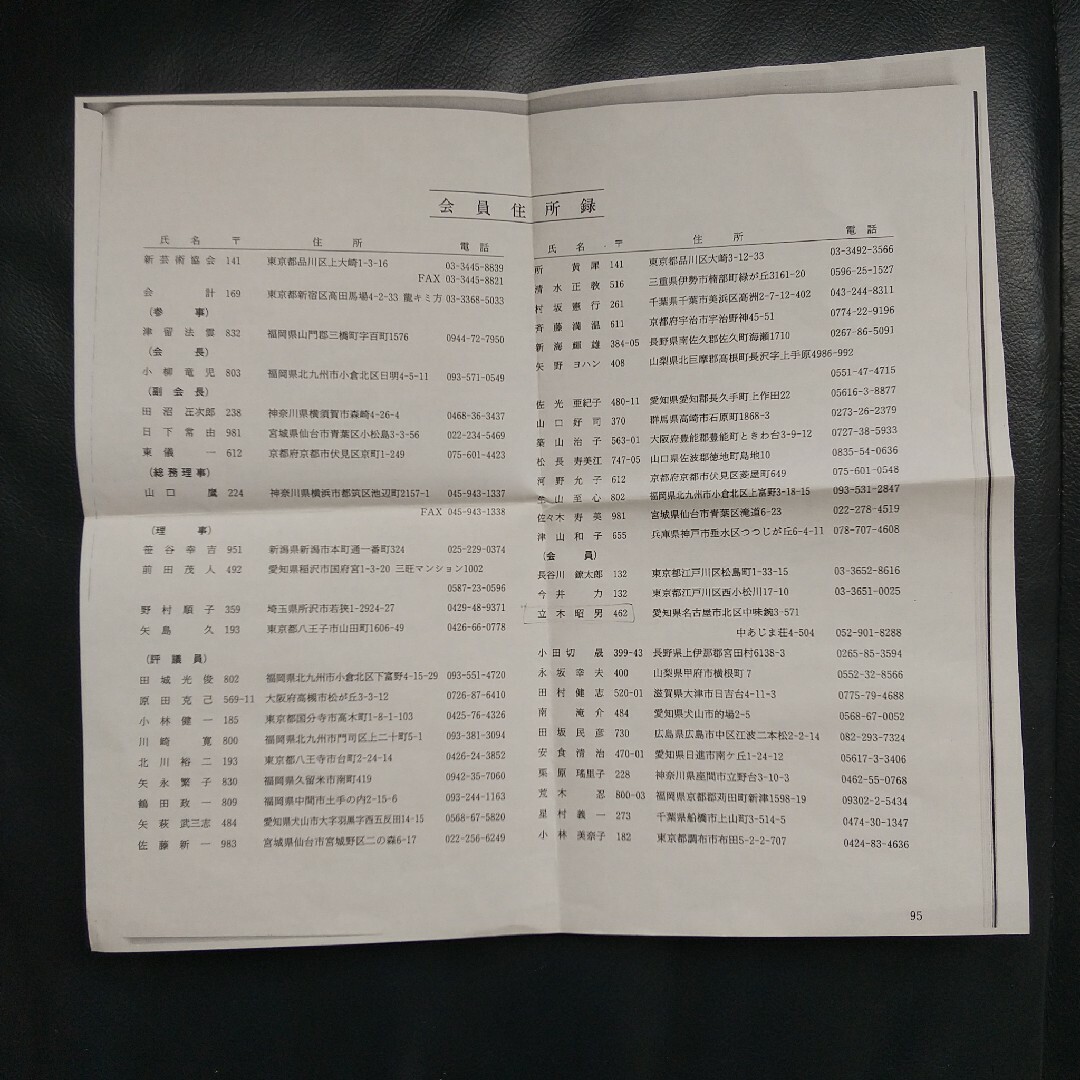 会員住所録
氏名 〒 住所 電話
新芸術協会 141 東京都品川区上大崎1-3-16 03-3445-8839
FAX 03-3445-8821
会計 169 東京都新宿区高田馬場4-2-33 龍キミ方 03-3368-5033
(参事)
津留法雲 832 福岡県山門郡三橋町字百町1576 0944-72-7950
(会長)
小柳竜児 803 福岡県北九州市小倉北区日明4-5-11 093-571-0549
(副会長)
田沼 238 神奈川県横須賀市森崎4-26-4 0468-36-3437
日下常由 981 宮城県仙台市青葉区小松島3-3-56 022-234-5469
東儀一 612 京都府京都市伏見区京町1-249 075-601-4423
(総務理事)
山口鷹 224 神奈川県横浜市都筑区池辺町2157-1 045-943-1337
FAX 045-943-1338
(理事)
笹谷幸吉 951 新潟県新潟市本町通一番町324 025-229-0374
前田茂人 492 愛知県稲沢市国府宮1-3-20 三旺マンション1002
0587-23-0596
野村順子 359 埼玉県所沢市若狭1-2924-27 0429-48-9371
矢島久 193 東京都八王子市山田町1606-49 0426-66-0778
(評議員)
田城光俊 802 福岡県北九州市小倉北区下富野4-15-29 093-551-4720
原田克己 569-11 大阪府高槻市松が丘3-3-12 0726-87-6410
小林健一 185 東京都国分寺市高木町1-8-1-103 0425-76-4326
川崎寛 800 福岡県北九州市門司区上二十町5-1 093-381-3094
北川裕二 193 東京都八王寺市台町2-24-14 0426-24-3852
矢永繁子 830 福岡県久留米市南町419 0942-35-7060
鶴田政一 809 福岡県中間市土手の内2-15-6 093-244-1163
矢萩武三志 484 愛知県犬山市大字羽黒字西五反田14-15 0568-67-5820
佐藤新一 983 宮城県仙台市宮城野区二の森6-17 022-256-6249
氏名 〒 住所 電話
所黄犀 141 東京都品川区大崎3-12-33 03-3492-3566
清水正敎 516 三重県伊勢市楠部町緑が丘3161-20 0596-25-1527
村坂憲行 261 千葉県千葉市美浜区高洲2-7-12-402 043-244-8311
斉藤満温 611 京都府宇治市宇治野神45-51 0774-22-9196
新海輝雄 384-05 長野県南佐久郡佐久町海瀬1710 0267-86-5091
矢野ヨハン 408 山梨県北巨摩郡高根町長沢字上手原4986-992
0551-47-4715
佐光亜紀子 480-11 愛知県愛知郡長久手町上作田22 05616-3-8877
山口好司 370 群馬県高崎市石原町1868-3 0273-26-2379
築山治子 563-01 大阪府豊能郡豊能町ときわ台3-9-12 0727-38-5933
松長寿美江 747-05 山口県佐波郡徳地町島地10 0835-54-0636
河野允子 612 京都府京都市伏見区菱屋町649 075-601-0548
至心 802 福岡県北九州市小倉北区上富野3-18-15 093-531-2847
佐々木寿英 981 宮城県仙台市青葉区滝道6-23 022-278-4519
津山和子 655 兵庫県神戸市垂水区つつじが丘6-4-11 078-707-4608
(会員)
長谷川鐐太郎 132 東京都江戸川区松島町1-33-15 03-3652-8616
今井力 132 東京都江戸川区西小松川17-10 03-3651-0025
立木昭男 462 愛知県名古屋市北区中味鋺3-571
中あじま荘4-504 052-901-8288
小田切晟 399-43 長野県上伊那郡宮田村6138-3 0265-85-3594
永坂幸夫 400 山梨県甲府市横根町7 0552-32-8566
田村健志 520-01 滋賀県大津市日吉台4-11-3 0775-79-4688
南滝介 484 愛知県犬山市的場2-5 0568-67-0052
田坂民彦 730 広島県広島市中区江波二本松2-2-14 082-293-7324
安食清治 470-01 愛知県日進市南ケ丘1-24-12 05617-3-3406
栗原瑤里子 228 神奈川県座間市立野台3-10-3 0462-55-0768
荒木忍 800-03 福岡県京都郡苅田町新津1598-19 09302-2-5434
星村義一 273 千葉県船橋市上山町3-514-5 0474-30-1347
小林美奈子 182 東京都調布市布田5-2-2-707 0424-83-4636
95